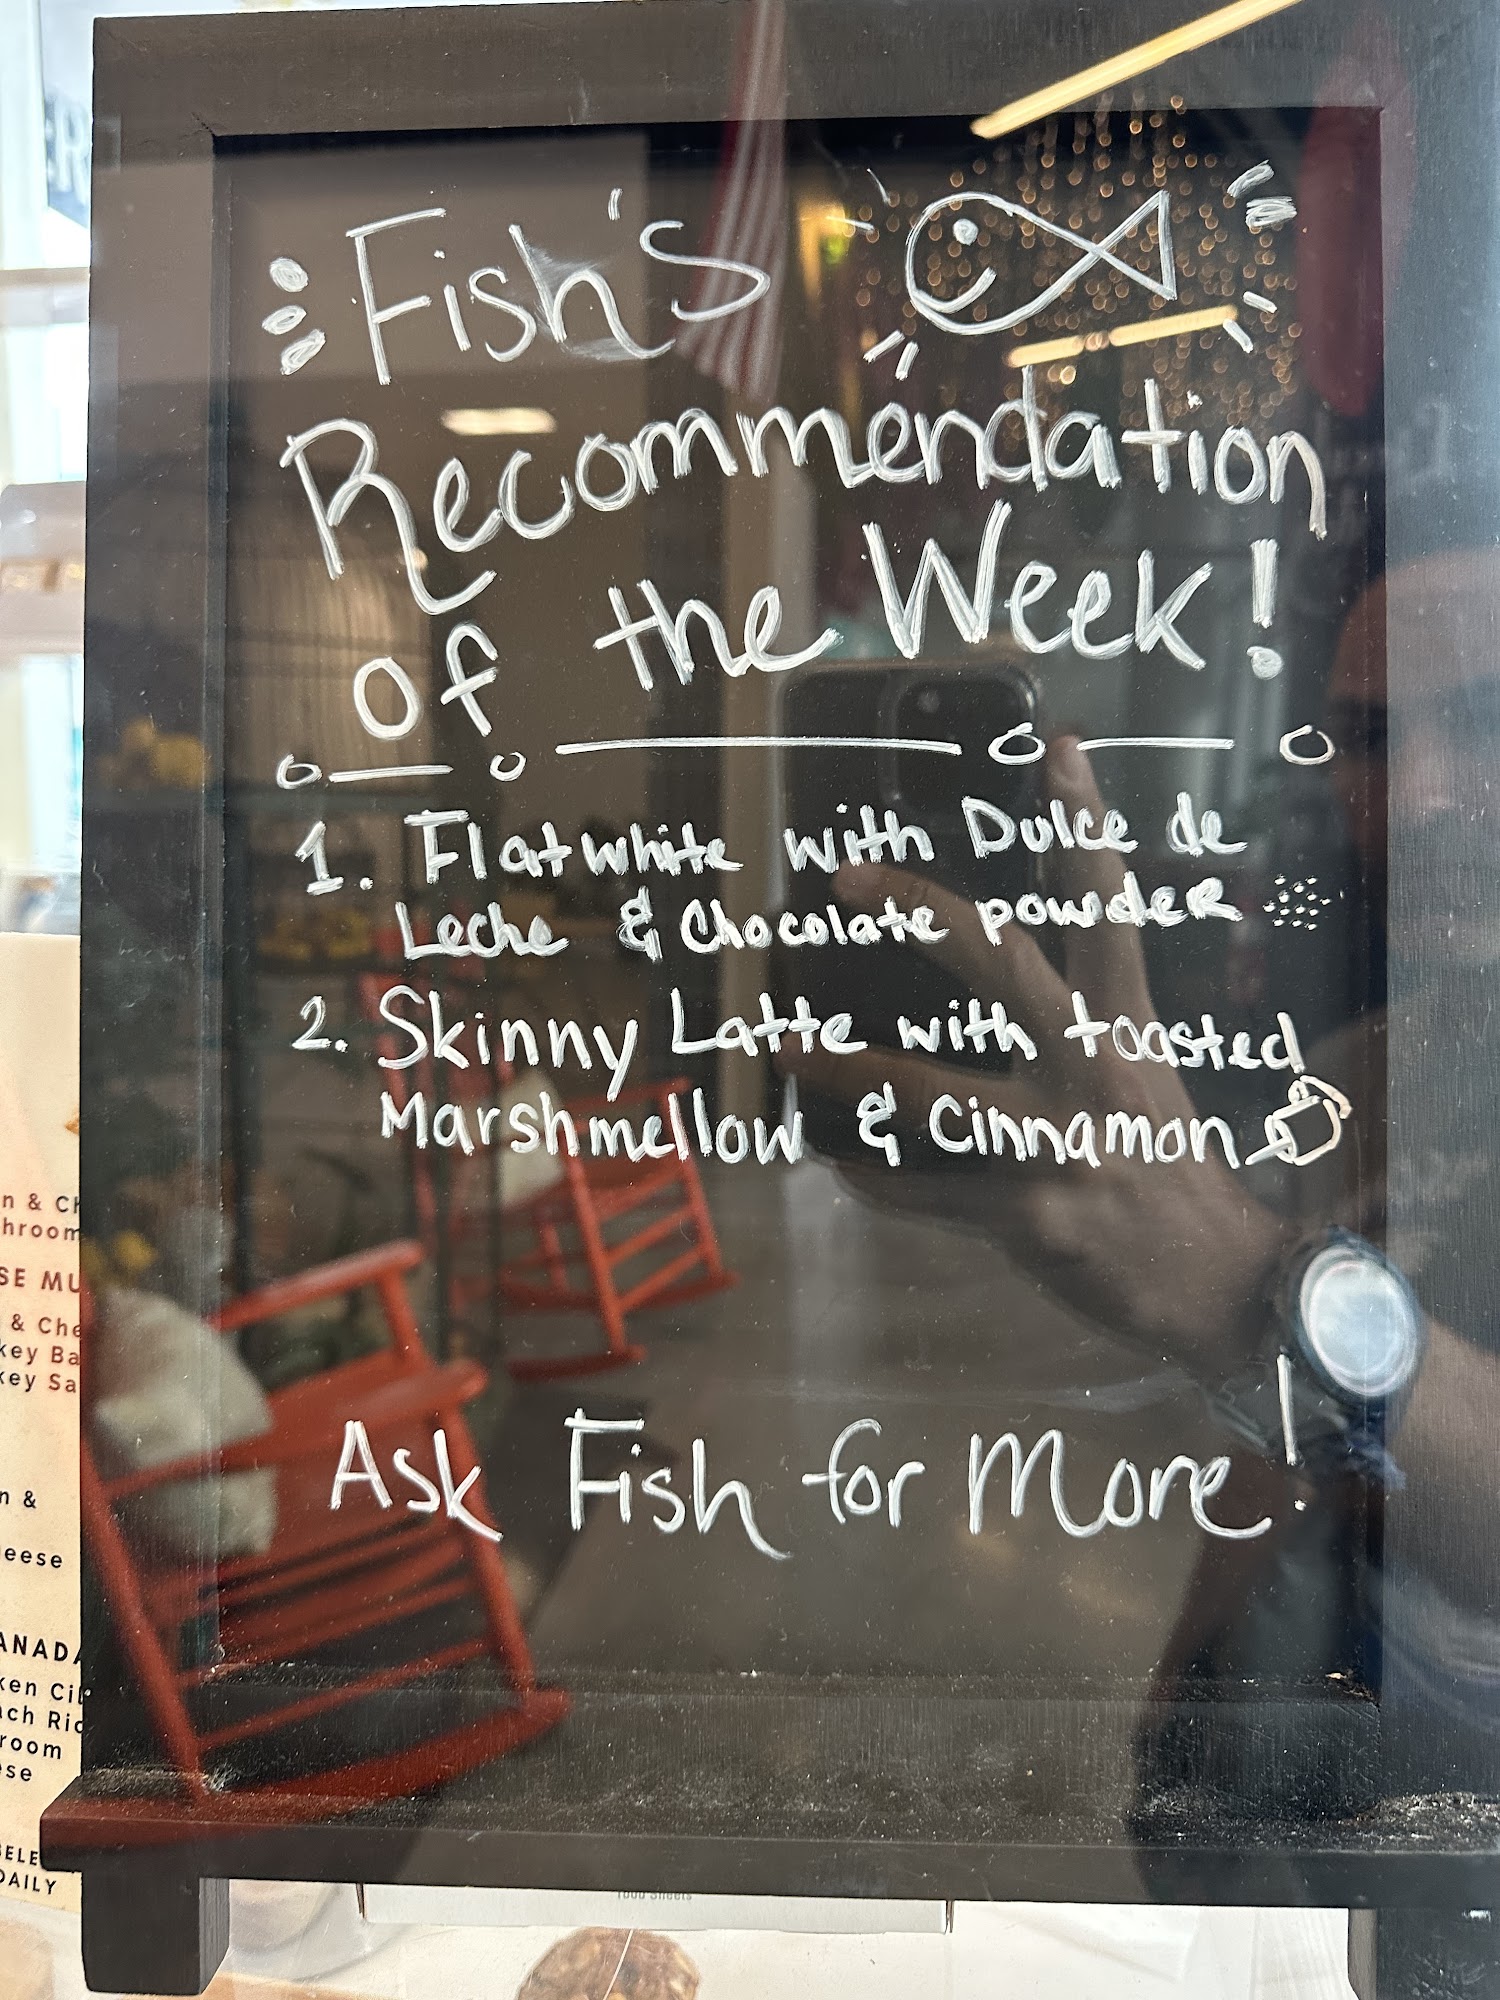 Fish's
Recommendation
of the Week!
1. Flatwhite with Dulce de
Leche & Chocolate powder
2. Skinny Latte with toasted
Marshmellow & Cinnamon
Ask Fish for More!
n & Ch
hroom
SE MU
& Che
key Ba
key Sa
n &
eese
ANADA
ken Cil
ach Ric
room
ese
SELE
DAILY
1000 Sheets